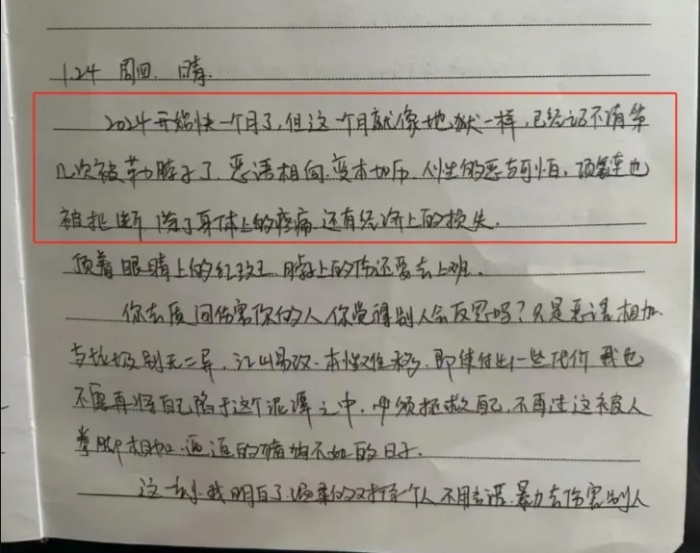 1.24 周四. 晴.
2024开始快一个月了,但这一个月就像地狱一样,已经记不清第
几次被勒脖子了.恶语相向.变本加厉.人性的恶与可怕.项链也
被扯断 除了身体上的疼痛.还有经济上的损失.
顶着眼睛上的红斑,脖上的伤还要去上班.
你去质问伤害你的人你觉得别人会反思吗?只是恶语相加
与垃圾别无二异,江山易改.本性难移.即使付出一些代价 我也
不愿再将自己陷于这个泥潭之中.必须拯救自己,不再过这被人
拳脚相加.逼迫的猪狗不如的日子.
这一刻.我明白了温柔的对待个人不用言语.暴力去伤害别人